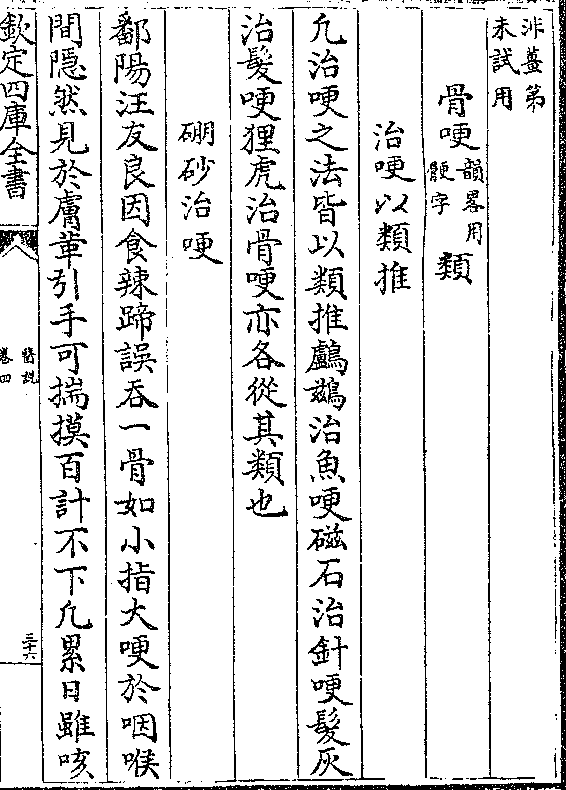 沸薑弟
未試用
骨哽韻畧用
骾字類
治哽以類推
凡治哽之法皆以類推鸕鷀治魚哽磁石治針哽髮灰
治髮哽狸虎治骨哽亦各從其類也
硼砂治哽
鄱陽汪友良因食辣蹄誤吞一骨如小指大哽於咽喉
間隱然見於膚革引手可揣摸百計不下凡累日雖咳
欽定四庫全書
醫説
卷四
三十六